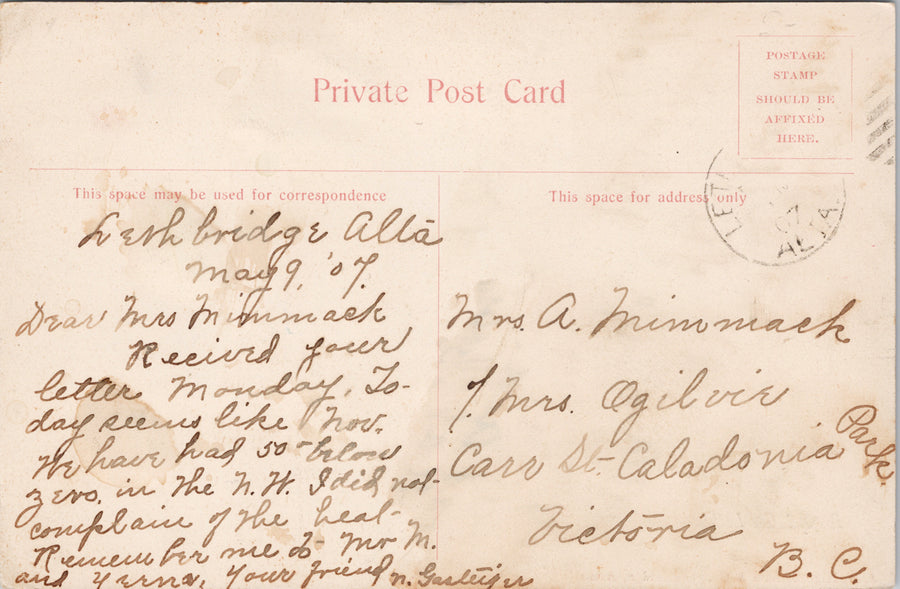 Private Post Card
POSTAGE
STAMP
SHOULD BE
AFFIXED
HERE.
This space may be used for correspondence
Lethbridge Alta
May 9, '07.
Dear Mrs Mimmack
Recived your
letter Monday. To-
day seems like Nov.
We have had 50° below
zero. in the N.W. I did not
complain of the heat.
Remember me to Mr M.
and Verna, Your friend N.
This space for address only
LET
07
ALTA
Mrs. A. Mimmack
Mrs. Ogilvie
Carr St. Caladonia Park.
Victoria
B. C.